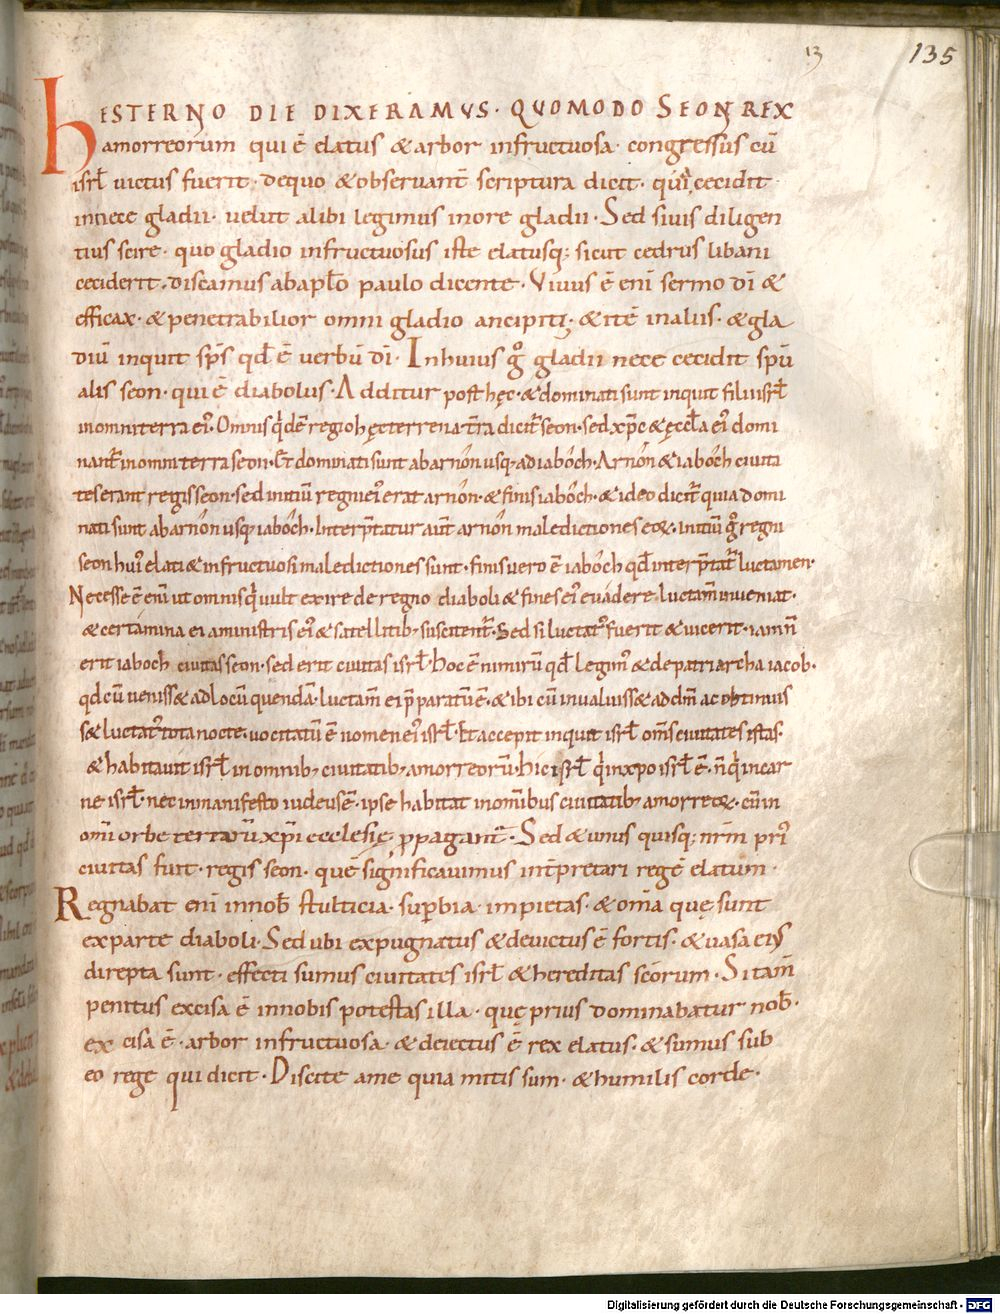 13 135
hESTERNO DIE DIXERAMVS· QVOMODO SEON REX
amorreorum qui ē elatus & arbor infructuosa· congressus cū
isrł uictus fuerit· dequo & obseruant̄ scriptura dicit· quia cecidit
innece gladii· uelut alibi legimus inore gladii· Sed siuis diligen
tius scire· quo gladio infructuosus iste elatusq; sicut cedrus libani
ceciderit· discamus abapło paulo dicente· Viuus ē eni sermo dī &
efficax· & penetrabilior omni gladio ancipiti; & itē inalus· & gla
diū inquit sps̄ qđ ē uerbū dī· Inhuius g° gladii nece cecidit spū
alis seon· qui ē diabolus· Additur post hęc· & dominati sunt inquit filii isrł
inomni terra ei'· Omnis qđē regio hęc terrena· tr̄a dicit̄ seon· sed xp̄c & ęccła ei' domi
nant̄ inomni terra seon· Et dominati sunt abarnón usq; adiabóch· Arnón & iabóch ciuita
tes erant regis seon· sed initiū regni ei' erat arnón· & finis iabóch· & ideo dicit̄ quia domi
nati sunt abarnón usq; iabóch· Interp̄tatur aut̄ arnón maledictiones eoꝝ· initiū g° regni
seon hui' elati & infructuosi maledictiones sunt· finis uero ē iabóch qđ interp̄tat̄ luctamen·
Necesse ē eni ut omnis q uult exire de regno diaboli & fines ei' euádere· luctam̄ inueniat·
& certamina ei aministris ei' & satellitib; suscitent̄· Sed si luctat' fuerit & uicerit· iam n̄
erit iaboch ciuitas seon· sed erit ciuitas isrł· hoc ē nimirū qđ legim' & de patriarcha iacob·
qđ cū uenisset ad locū quendā· luctam̄ ei p̄paratū ē· & ibi cū inualuisset ad dm̄ ac obtinuis
s& luctat' tota nocte· uocitatū ē nomen ei' isrł· Et accepit inquit isrł om̄s ciuitates istas·
& habitauit isrł in omnib; ciuitatib; amorreorū· hic isrł q inxpo isrł ē· n̄ q incar
ne isrł· nec inmanifesto iudeus ē· ipse habitat inom̄ibus ciuitatib; amorreoꝝ· cū in
omi orbe terrarū xp̄i ecclesię ꝓpagant̄· Sed & unus quisq; nr̄m pri'
ciuitas fuit· regis seon· quē significauimus int̄pretari regē elatum·
Regnabat eni innob̄ stulticia· suꝑbia· impietas· & om̄a quę sunt
exparte diaboli· Sed ubi expugnatus & deuictus ē fortis· & uasa eius
direpta sunt· effecti sumus ciuitates isrł & hereditas scōrum· Si tam̄
penitus excisa ē innobis potestas illa· quę prius dominabatur nob̄·
ex cisa ē· arbor infructuosa· & deiectus ē rex elatus· & sumus sub
eo rege qui dicit· Discite ame quia mitis sum· & humilis corde·
Digitalisierung gefördert durch die Deutsche Forschungsgemeinschaft - DFG